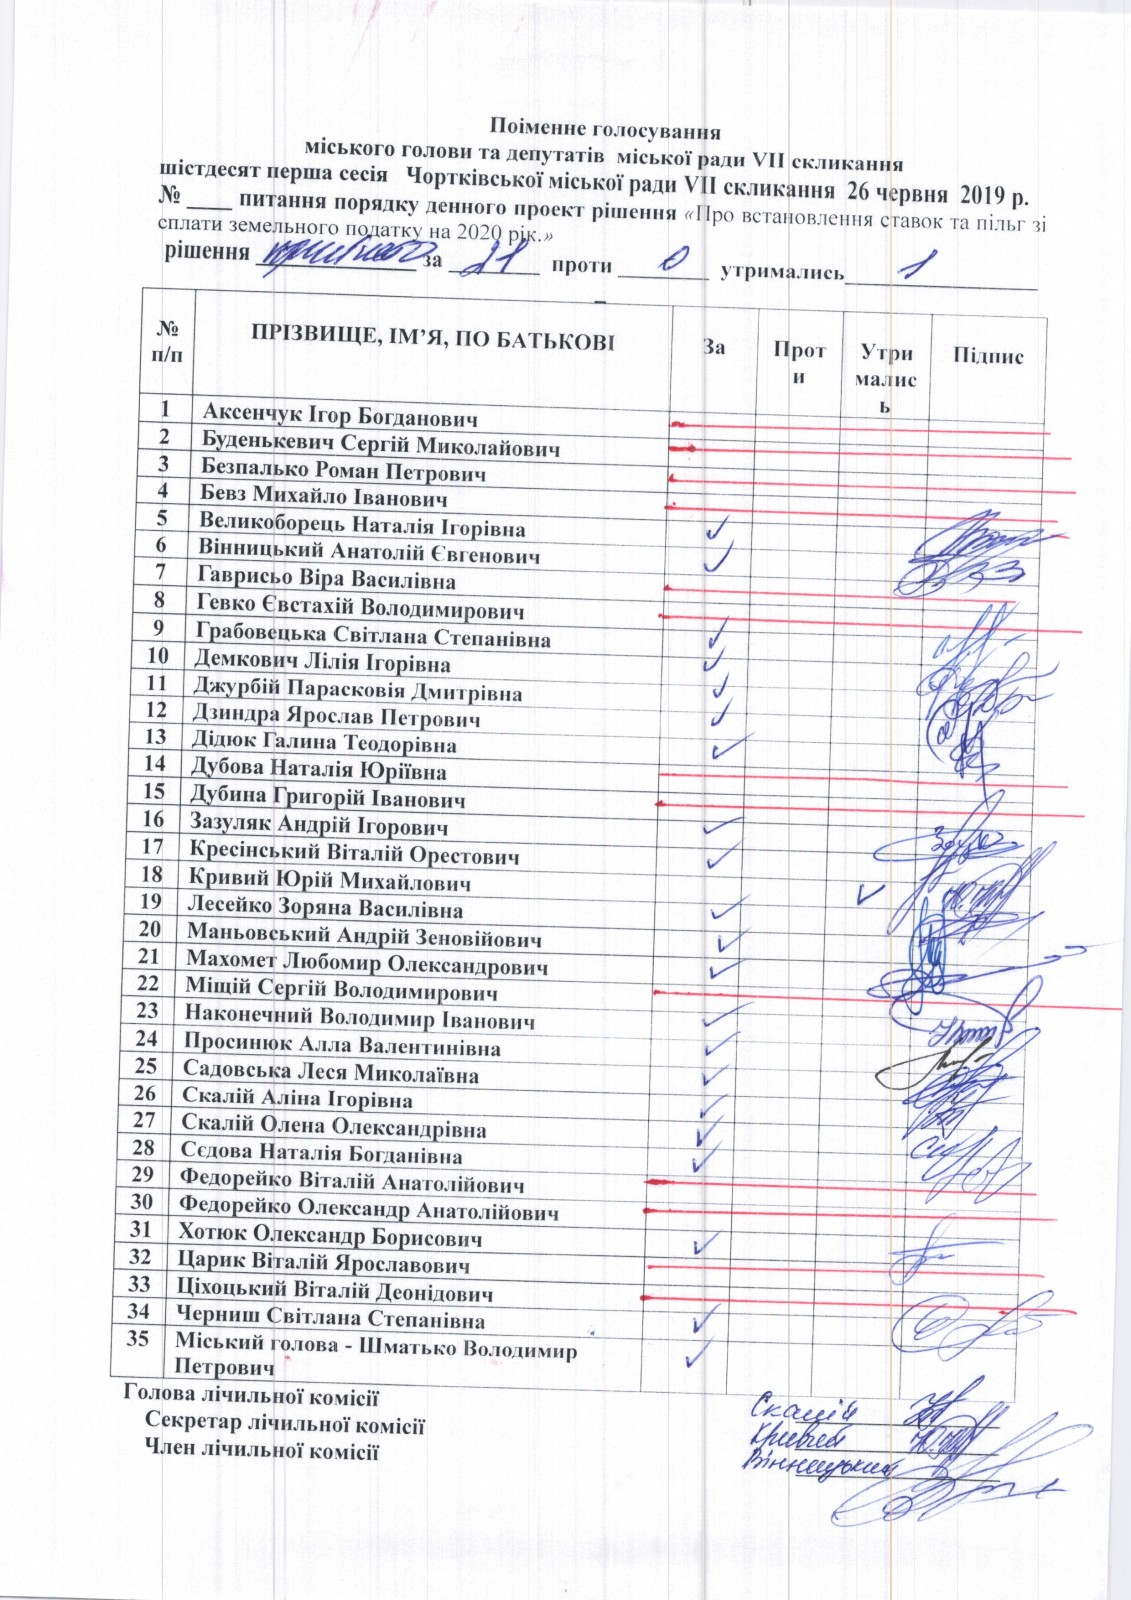 Поіменне голосування
міського голови та депутатів міської ради VII скликання
шістдесят перша сесія Чортківської міської ради VII скликання 26 червня 2019 р.
№ ____ питання порядку денного проект рішення «Про встановлення ставок та пільг зі
сплати земельного податку на 2020 рік.»
рішення прийнято за 21 проти 0 утримались 1
№ п/п ПРІЗВИЩЕ, ІМ’Я, ПО БАТЬКОВІ За Проти УтрималисЬ Підпис
1 Аксенчук Ігор Богданович
2 Буденькевич Сергій Миколайович
3 Безпалько Роман Петрович
4 Бевз Михайло Іванович
5 Великоборець Наталія Ігорівна ✓
6 Вінницький Анатолій Євгенович ✓
7 Гаврисьо Віра Василівна
8 Гевко Євстахій Володимирович
9 Грабовецька Світлана Степанівна ✓
10 Демкович Лілія Ігорівна ✓
11 Джурбій Парасковія Дмитрівна ✓
12 Дзиндра Ярослав Петрович ✓
13 Дідюк Галина Теодорівна ✓
14 Дубова Наталія Юріївна
15 Дубина Григорій Іванович
16 Зазуляк Андрій Ігорович ✓
17 Кресінський Віталій Орестович ✓
18 Кривий Юрій Михайлович ✓
19 Лесейко Зоряна Василівна ✓
20 Маньовський Андрій Зеновійович ✓
21 Махомет Любомир Олександрович ✓
22 Міщій Сергій Володимирович
23 Наконечний Володимир Іванович ✓
24 Просинюк Алла Валентинівна ✓
25 Садовська Леся Миколаївна ✓
26 Скалій Аліна Ігорівна ✓
27 Скалій Олена Олександрівна ✓
28 Сєдова Наталія Богданівна ✓
29 Федорейко Віталій Анатолійович
30 Федорейко Олександр Анатолійович
31 Хотюк Олександр Борисович ✓
32 Царик Віталій Ярославович
33 Ціхоцький Віталій Деонідович
34 Черниш Світлана Степанівна ✓
35 Міський голова - Шматько Володимир
Петрович ✓
Голова лічильної комісії Скалій
Секретар лічильної комісії Кривий
Член лічильної комісії Вінницький